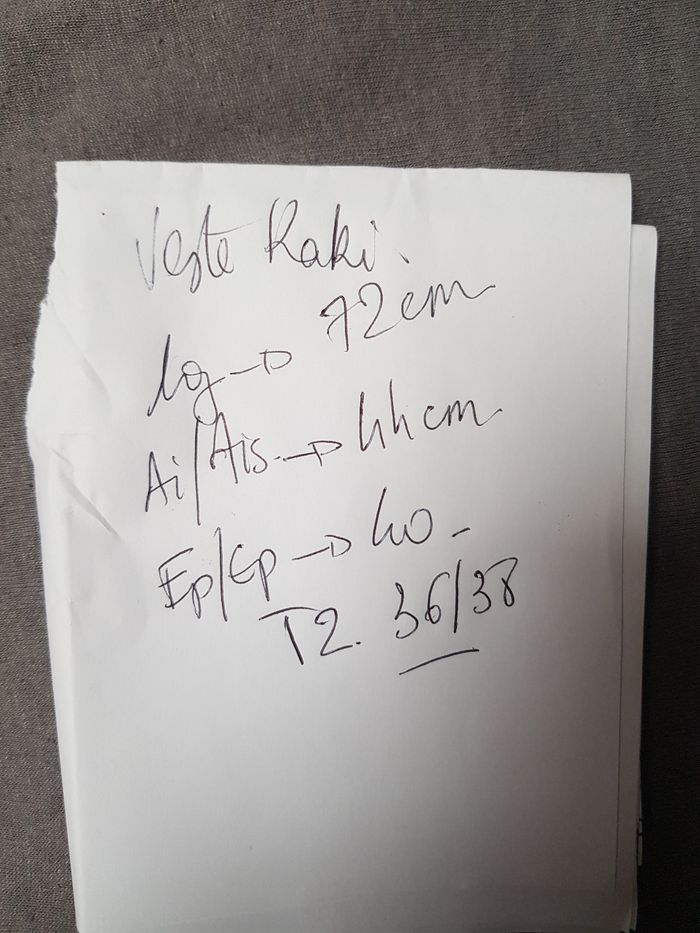 Veste Kaki.
lg → 72cm
Ai/Ais → 44cm
Ep/Ep → 40 -
T2. 36/38